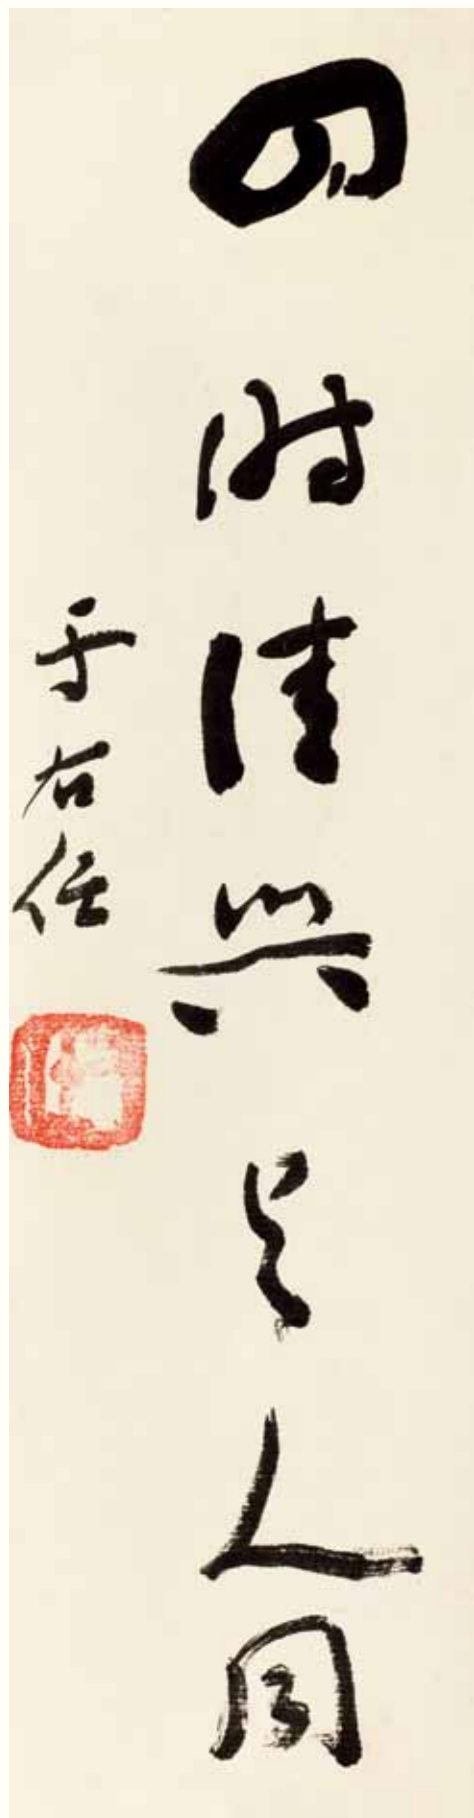 四時佳興與人同
于右任